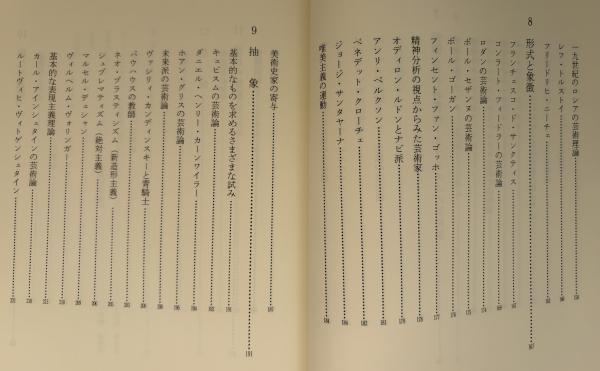 一九世紀のロシアの芸術理論
レフ・トルストイ
フリードリヒ・ニーチェ
8 形式と象徴 167
フランチェスコ・ド・サンクティス
コンラート・フィードラーの芸術論
ロダンの芸術論
ポール・セザンヌの芸術論
ポール・ゴーガン
フィンセント・ファン・ゴッホ 177
精神分析の視点からみた芸術家
オディロン・ルドンとナビ派
アンリ・ベルクソン 181
ベネデット・クローチェ 182
ジョージ・サンタヤーナ
唯美主義の運動 184
美術史家の寄与 187
9 抽象 191
基本的なものを求めるさまざまな試み 191
キュビスムの芸術論
ダニエル・ヘンリー・カーンワイラー
ホアン・グリスの芸術論
未来派の芸術論
ヴァシリィ・カンディンスキーと青騎士
バウハウスの教師
ネオ・プラスティシズム（新造形主義）
シュプレマティズム（絶対主義）
マルセル・デュシャン
ヴィルヘルム・ヴォリンガー
基本的な表現主義理論
カール・アインシュタインの芸術論
ルートヴィヒ・ヴィトゲンシュタイン